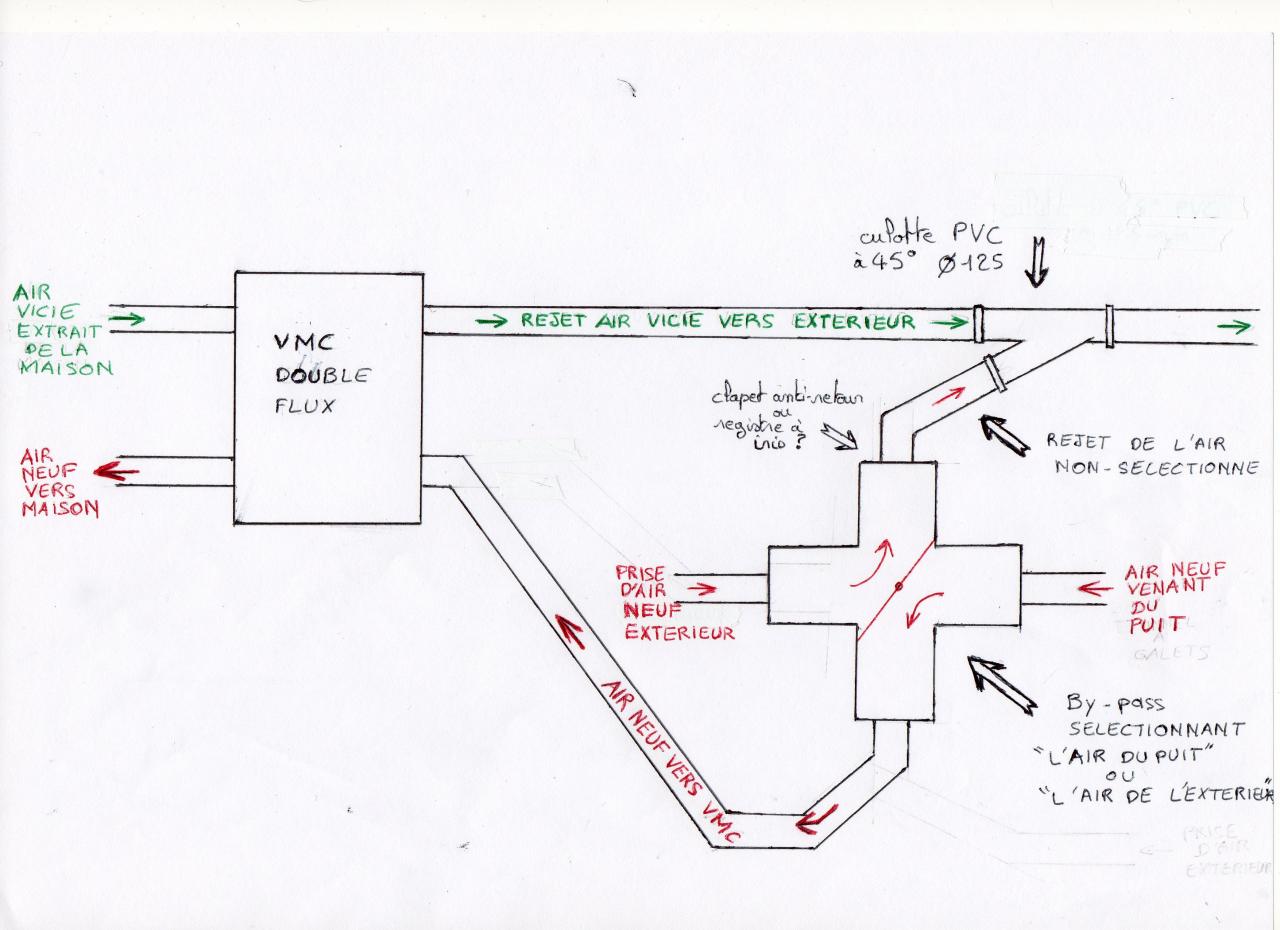 culotte PVC
à 45° Ø125
AIR
VICIE
EXTRAIT
DE LA
MAISON
REJET AIR VICIE VERS EXTERIEUR
VMC
DOUBLE
FLUX
clapet anti-retour
ou
registre à
iris ?
REJET DE L'AIR
NON-SELECTIONNE
AIR
NEUF
VERS
MAISON
PRISE
D'AIR
NEUF
EXTERIEUR
AIR NEUF
VENANT
DU
PUIT
A
GALETS
AIR NEUF VERS VMC
By-pass
SELECTIONNANT
"L'AIR DU PUIT"
OU
"L'AIR DE L'EXTERIEUR"
PRISE
D'AIR
EXTERIEUR